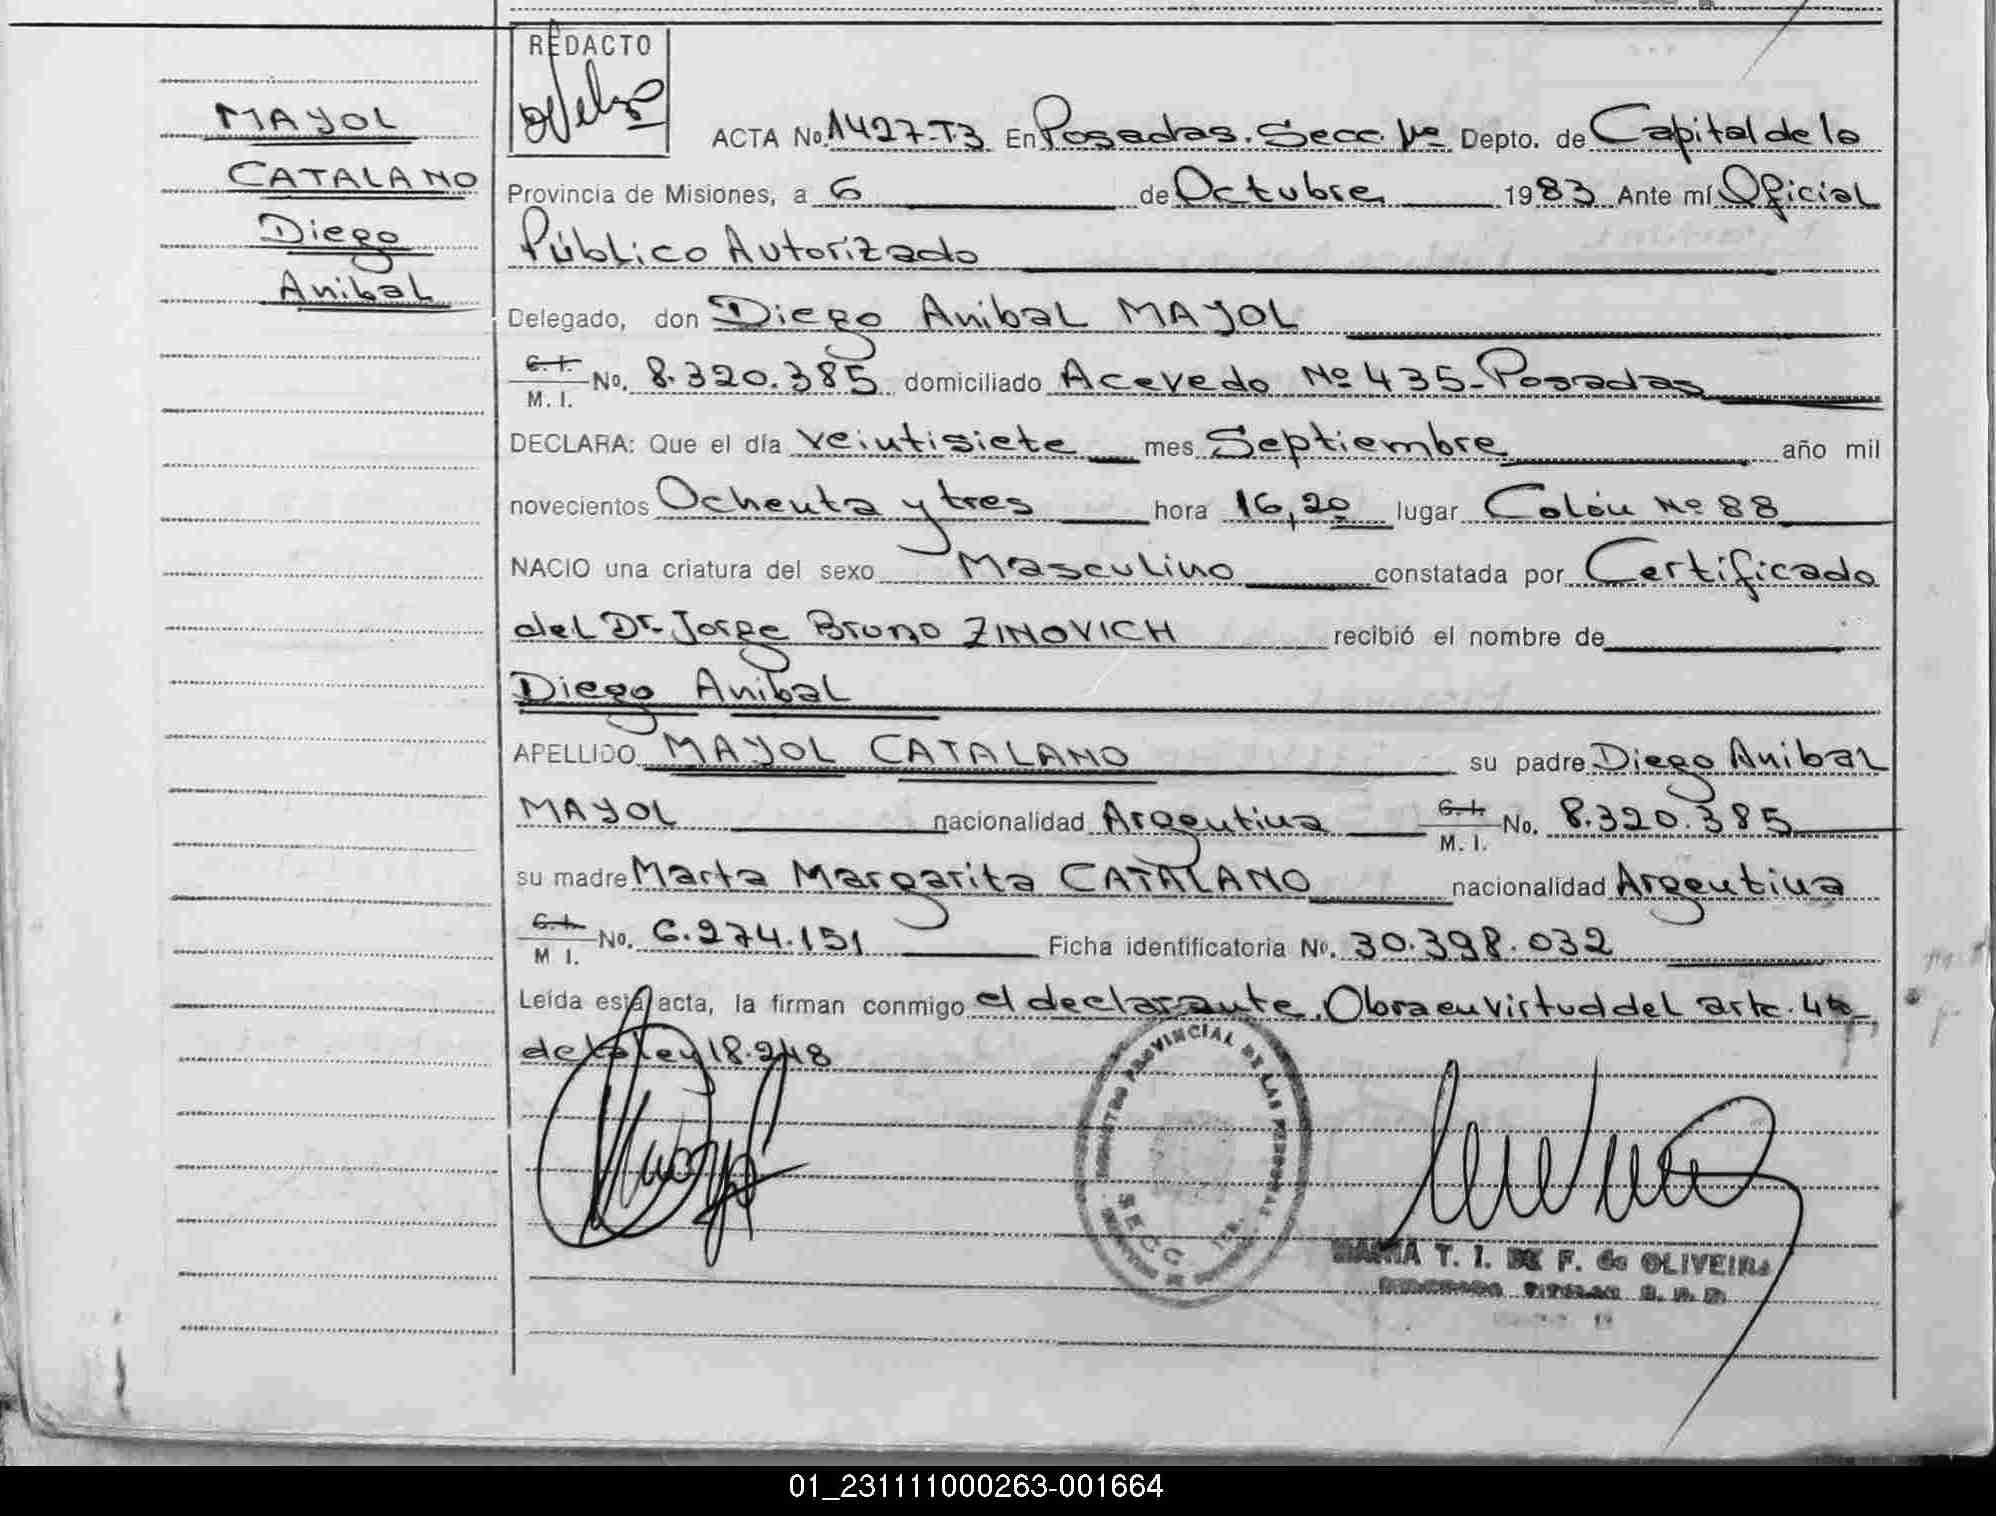 REDACTO
MAYOL
CATALANO
Diego
Anibal
ACTA No. 1427-T3 En Posadas. Secc. 1ra Depto. de Capital de la
Provincia de Misiones, a 6 de Octubre 1983 Ante mí Oficial
Público Autorizado
Delegado, don Diego Anibal MAYOL
C.I. M.I. No. 8.320.385 domiciliado Acevedo Nº 435-Posadas
DECLARA: Que el día veintisiete mes Septiembre año mil
novecientos Ochenta y tres hora 16,20 lugar Colón Nº 88
NACIO una criatura del sexo Masculino constatada por Certificado
del Dr. Jorge Bruno ZINOVICH recibió el nombre de
Diego Anibal
APELLIDO MAYOL CATALANO su padre Diego Anibal
MAYOL nacionalidad Argentina C.I. M.I. No. 8.320.385
su madre Marta Margarita CATALANO nacionalidad Argentina
C.I. M I. No. 6.274.151 Ficha identificatoria No. 30.398.032
Leída esta acta, la firman conmigo el declarante. Obra en virtud del artc. 4to
de la ley 18.248
REGISTRO PROVINCIAL DE LAS PERSONAS
SECC. 1RA.
MARIA T. I. DE F. de OLIVEIRA
TITULAR
01_231111000263-001664